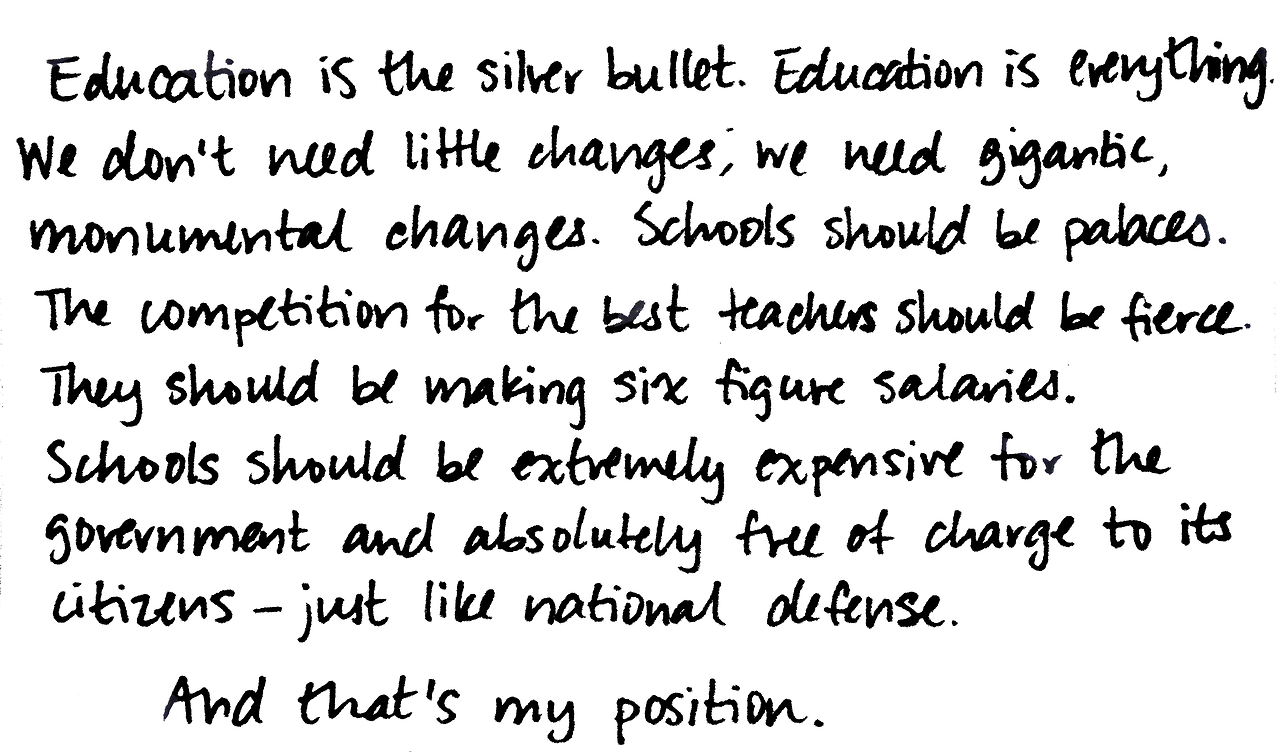 Education is the silver bullet. Education is everything.
We don't need little changes; we need gigantic,
monumental changes. Schools should be palaces.
The competition for the best teachers should be fierce.
They should be making six figure salaries.
Schools should be extremely expensive for the
government and absolutely free of charge to its
citizens – just like national defense.
And that's my position.